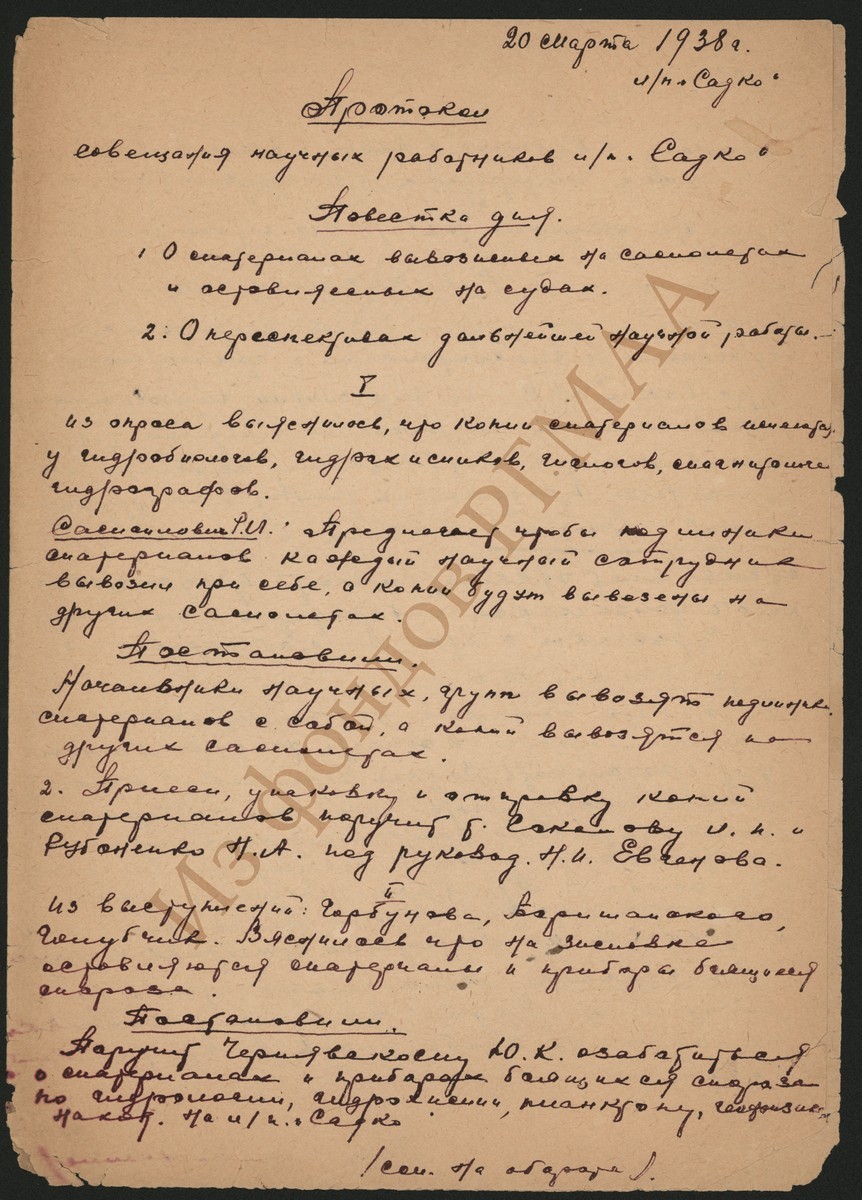 20 Марта 1938 г.
л/п "Садко"
Протокол
совещания научных работников л/п. Садко"
Повестка дня.
1 О материалах вывозимых на самолетах
и оставляемых на судах.
2. О перспективах дальнейшей научной работы.
I
Из опроса выяснилось, что копии материалов имеются
у гидробиологов, гидрохимиков, геологов,
гидрографов.
Самойлович Р.Л. Предлагает чтобы подлинники
материалов каждый научный сотрудник
вывозил при себе, а копии будут вывезены на
других самолетах.
Постановили.
Начальники научных групп вывозят подлинник.
материалов с собой, а копии вывозятся на
других самолетах.
2. Прием, упаковку и отправку копий
материалов поручит т. и
Рубоненко Н.А. под руковод. Н.И. Евгенова.
II
Из выступлений: Горбунова,
Голубчик. Вяснилось что на зимовке
оставляются материалы и приборы боящиеся
мороза.
Постановили.
Поручит Чернявскому Ю.К. озаботиться
о материалах и приборах боящихся мороза
по гидрологии, гидрохимии, планктону,
наход. на л/п. "Садко
/см. на обороте/.
Из фондов РГМАА